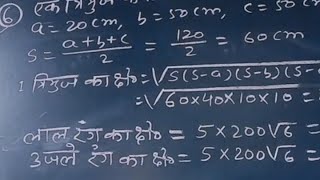 6 एक त्रिभुज
a = 20cm, b = 50cm, c = 50cm
S = a+b+c/2 = 120/2 = 60 cm
1 त्रिभुज का क्षे० = √S(S-a)(S-b)(S-
= √60×40×10×10 =
लाल रंग का क्षे० = 5×200√6 =
उजले रंग का क्षे० = 5×200√6 =